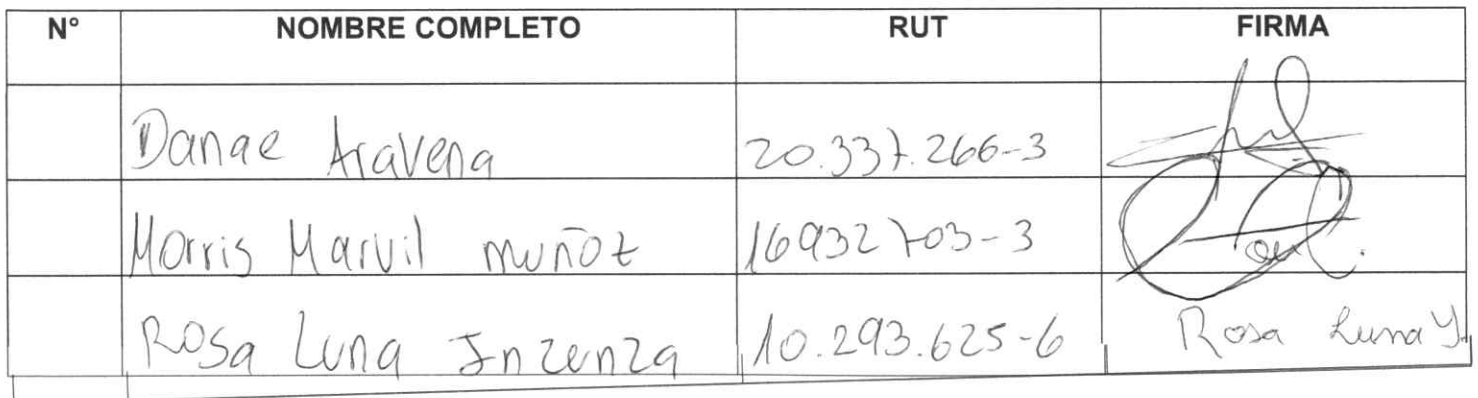 N° NOMBRE COMPLETO RUT FIRMA
Danae Aravena 20.337.266-3
Morris Marvil muñoz 16932703-3
Rosa Luna Inzunza 10.293.625-6 Rosa Luna Y.